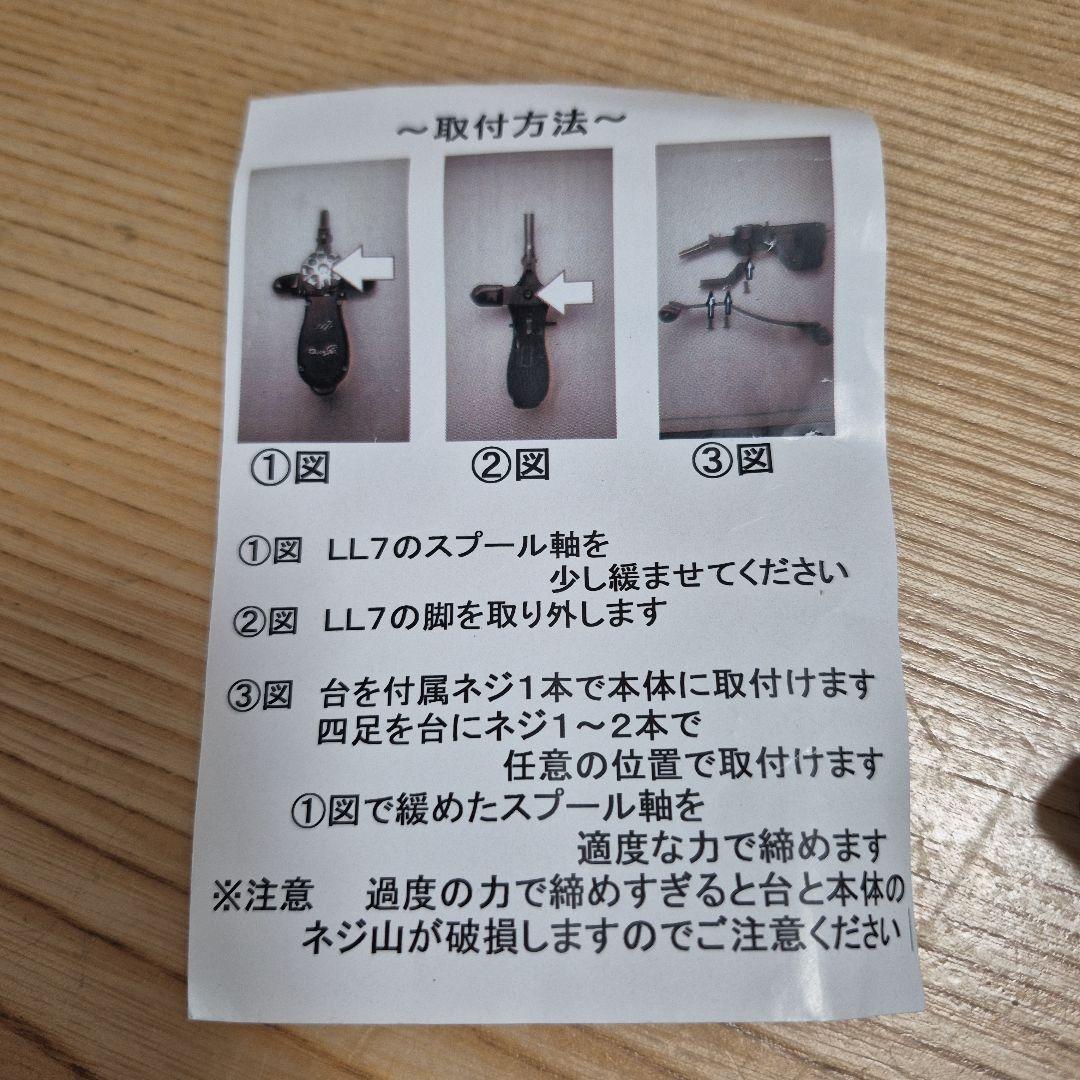 ～取付方法～
①図
②図
③図
①図　LL7のスプール軸を
少し緩ませてください
②図　LL7の脚を取り外します
③図　台を付属ネジ1本で本体に取付けます
四足を台にネジ1～2本で
任意の位置で取付けます
①図で緩めたスプール軸を
適度な力で締めます
※注意　過度の力で締めすぎると台と本体の
ネジ山が破損しますのでご注意ください